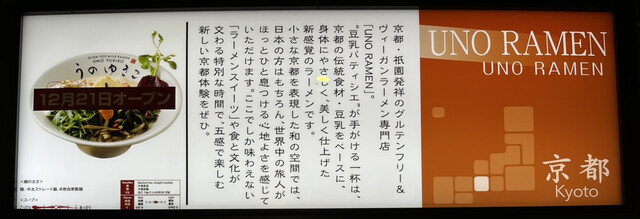 うのゆきこ
UNO YUKIKO
12月21日オープン
京都・祇園発祥のグルテンフリー&
ヴィーガンラーメン専門店
「UNO RAMEN」。
"豆乳パティシエ"が手がける一杯は、
京都の伝統食材・豆乳をベースに、
身体にやさしく、美しく仕上げた
新感覚のラーメンです。
小さな京都を表現した和の空間では、
日本の方はもちろん、世界中の旅人が
ほっとひと息つける心地よさを感じて
いただけます。ここでしか味わえない
「ラーメンスイーツ」や食と文化が
交わる特別な時間で、五感で楽しむ
新しい京都体験をぜひ。
UNO RAMEN
UNO RAMEN
京都
Kyoto